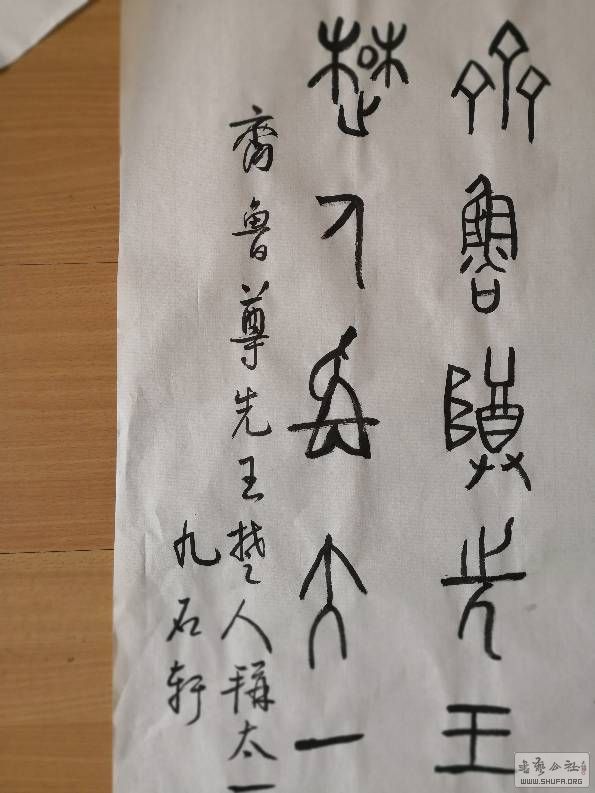 齊魯尊先王
楚人稱太一
齊魯尊先王楚人稱太一
九石軒
书艺公社
WWW.SHUFA.ORG